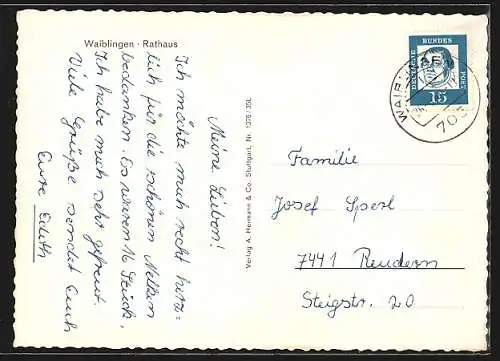 Waiblingen · Rathaus
Meine Lieben!
Ich möchte mich recht herz=
lich für die schönen Nelken
bedanken. Es waren 16 Stück,
Ich habe mich sehr gefreut.
Viele Grüße sendet Euch
Eure Edith
Verlag A. Hermann & Co. Stuttgart, Nr.
DEUTSCHE BUNDESPOST
15
Familie
Josef Sperl
7441 Reudern
Steigstr. 20